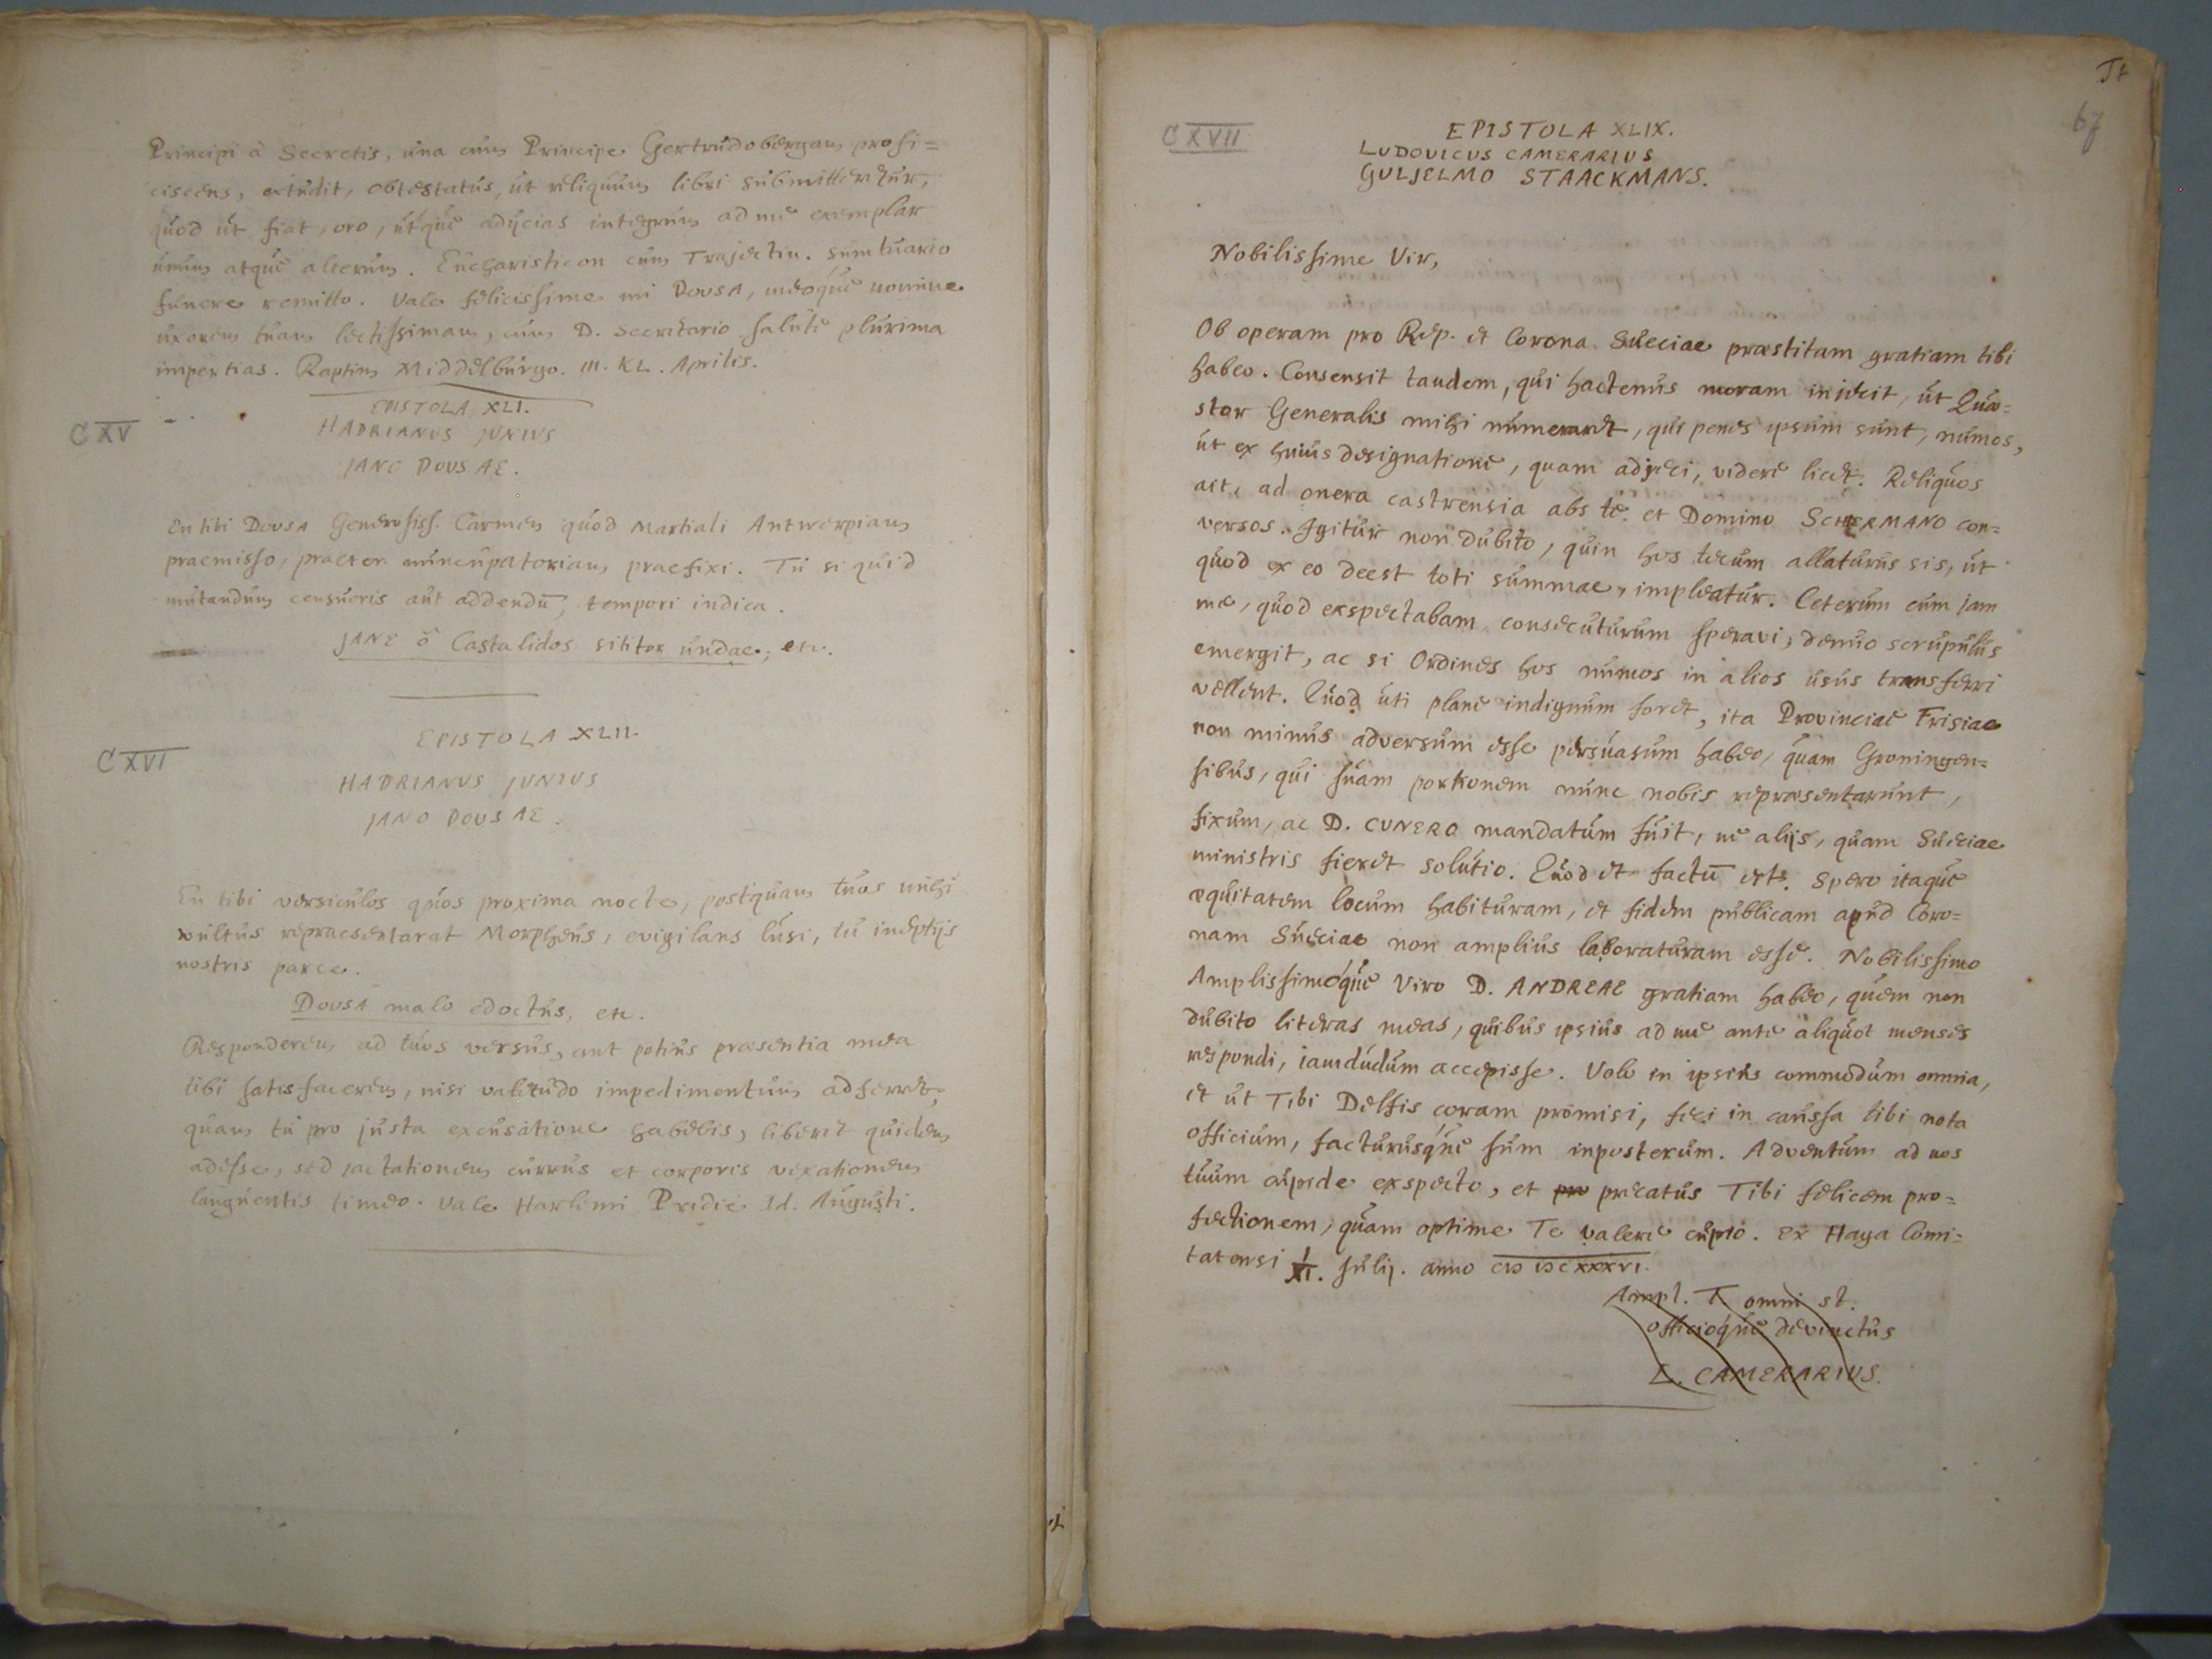 Principi à Secretis, una cum Principe Gertrudobergam profi=
ciscens, extudit, obtestatus, ut reliquum libri submitteretur,
quod ut fiat, oro, utque adijcias integrum ad me exemplar
unum atque alterum. Eucharisticon cum Trajectin. sumtuario
funere remitto. Vale felicissime mi DOUSA, meoque nomine
uxorem tuam lectissimam, cum D. Secretario salute plurima
impertias. Raptim Middelburgo. III. KL. Aprilis.
CXV
EPISTOLA XLI.
HADRIANUS JUNIUS
JANO DOUSAE.
En tibi DOUSA Generosiss. Carmen quod Martiali Antwerpiam
praemisso, praeter nuncupatoriam praefixi. Tu si quid
mutandum censueris aut addendū, tempori indica.
JANE ô Castalidos sititor undae, etc.
CXVI
EPISTOLA XLII.
HADRIANUS JUNIUS
JANO DOUSAE.
En tibi versiculos quos proxima nocte, postquam tuos mihi
vultus repraesentarat Morpheus, evigilans lusi, tu ineptijs
nostris parce.
DOUSA malo edoctus, etc.
Responderem ad tuos versus, aut potius praesentia mea
tibi satisfacerem, nisi valitudo impedimentum adferret,
quam tu pro justa excusatione habebis, liberet quidem
adesse, sed jactationem currus et corporis vexationem
languentis timeo. Vale Harlemi Pridie Id. Augusti.
67
CXVII
EPISTOLA XLIX.
LUDOVICUS CAMERARIUS
GULJELMO STAACKMANS.
Nobilissime Vir,
Ob operam pro Rep. et Corona Sueciae praestitam gratiam tibi
habeo. Consensit tandem, qui hactenus moram injecit, ut Quae=
stor Generalis mihi numeraret, qui penes ipsum sunt, numos,
ut ex huius designatione, quam adjeci, videre licet. Reliquos
ait, ad onera castrensia abs te et Domino SCHERMANO con=
versos. Igitur non dubito, quin hos tecum allaturus sis, ut
quod ex eo deest toti summae, impleatur. Ceterum cum jam
me, quod exspectabam consecuturum speravi, denuo scrupulus
emergit, ac si Ordines hos numos in alios usus transferri
vellent. Quod uti plane indignum foret, ita Provinciae Frisiae
non minus adversum esse persuasum habeo, quam Groningen=
sibus, qui suam portionem nunc nobis repraesentarunt,
fixum, ac D. CUNERO mandatum fuit, ne alijs, quam Sueciae
ministris fieret solutio. Quod et factū est. Spero itaque
aequitatem locum habituram, et fidem publicam apud Coro=
nam Sueciae non amplius laboraturam esse. Nobilissimo
Amplissimoque Viro D. ANDREAE gratiam habeo, quem non
dubito literas meas, quibus ipsius ad me ante aliquot menses
respondi, iamdudum accepisse. Volo in ipsius commodum omnia,
et ut Tibi Delfis coram promisi, feci in caussa tibi nota
officium, facturusque sum inposterum. Adventum ad nos
tuum cupide exspecto, et pro precatus Tibi felicem pro=
fectionem, quam optime Te valere cupio. Ex Haga Comi=
tatensi 1/XI. Julij. anno CIↃ IↃC XXXVI.
Ampl. T. omni st.
officioque devinctus
L. CAMERARIUS.